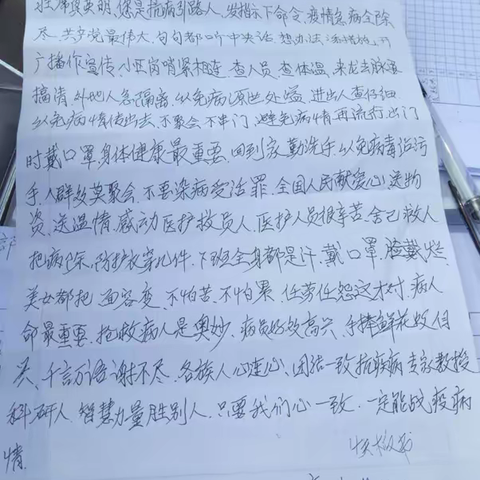 主席很英明,您是抗病引路人,发指示下命令,疫情急病全除
尽,共产党最伟大,句句都听中央话,想办法
广播作宣传,小区岗哨紧相连,查人员,查体温,来龙去脉
搞清,外地人急隔离,以免病源世处,进出人查仔细
以免病情传出去,不聚会不串门,避免病情再流行,出门
时戴口罩,身体健康最重要,回到家勤洗手,以免病毒沾污
手,人群处莫聚会,不要染病受活罪,全国人民献爱心,送物
资,送温情,感动医护救员人,医护人员很辛苦,舍己救人
把病除,防护衣穿几件,下班全身都是汗,戴口罩,脸戴烂,
美女都把面容变,不怕苦,不怕累,任劳任怨这才对,病人
命最重要,抢救病人是奥妙,病员好效高兴,手捧鲜花效但
关,千言万语谢不尽,各族人心连心,团结一致抗疾病,专家教授
科研人,智慧力量胜别人,只要我们心一致,一定能战疫病
情.